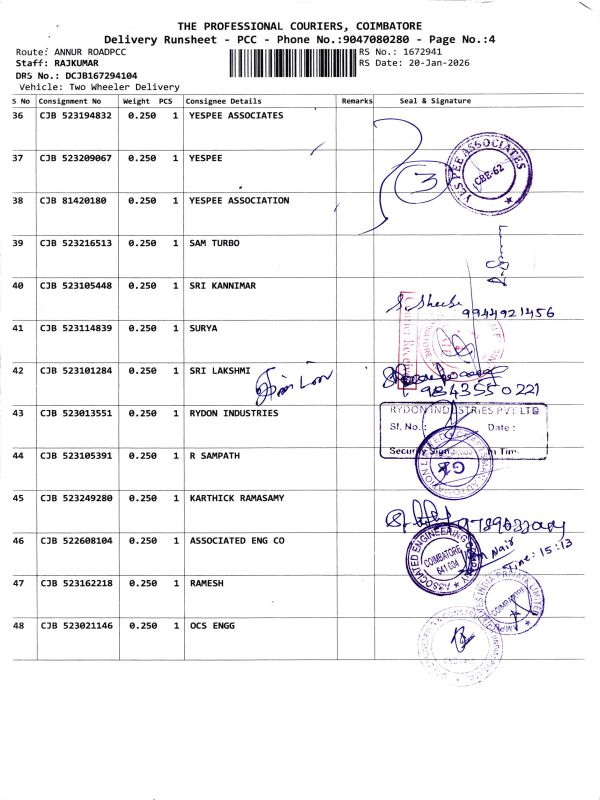 THE PROFESSIONAL COURIERS, COIMBATORE
Delivery Runsheet - PCC - Phone No.:9047080280 - Page No.:4
Route: ANNUR ROADPCC
RS No.: 1672941
Staff: RAJKUMAR
RS Date: 20-Jan-2026
DRS No.: DCJB167294104
Vehicle: Two Wheeler Delivery
S No Consignment No Weight PCS Consignee Details Remarks Seal & Signature
36 CJB 523194832 0.250 1 YESPEE ASSOCIATES
YES PEE ASSOCIATES
CBE-62
37 CJB 523209067 0.250 1 YESPEE
3
38 CJB 81420180 0.250 1 YESPEE ASSOCIATION
39 CJB 523216513 0.250 1 SAM TURBO
40 CJB 523105448 0.250 1 SRI KANNIMAR
9944921456
41 CJB 523114839 0.250 1 SURYA
42 CJB 523101284 0.250 1 SRI LAKSHMI
9843550221
43 CJB 523013551 0.250 1 RYDON INDUSTRIES
RYDON INDUSTRIES PVT LTD
Sl. No.: Date :
Security In Time
44 CJB 523105391 0.250 1 R SAMPATH
45 CJB 523249280 0.250 1 KARTHICK RAMASAMY
46 CJB 522608104 0.250 1 ASSOCIATED ENG CO
ASSOCIATED ENGINEERING COMPANY
COIMBATORE
641 004
Nair
Time: 15:13
47 CJB 523162218 0.250 1 RAMESH
INDIA PRIVATE LIMITED
COIMBATORE
48 CJB 523021146 0.250 1 OCS ENGG